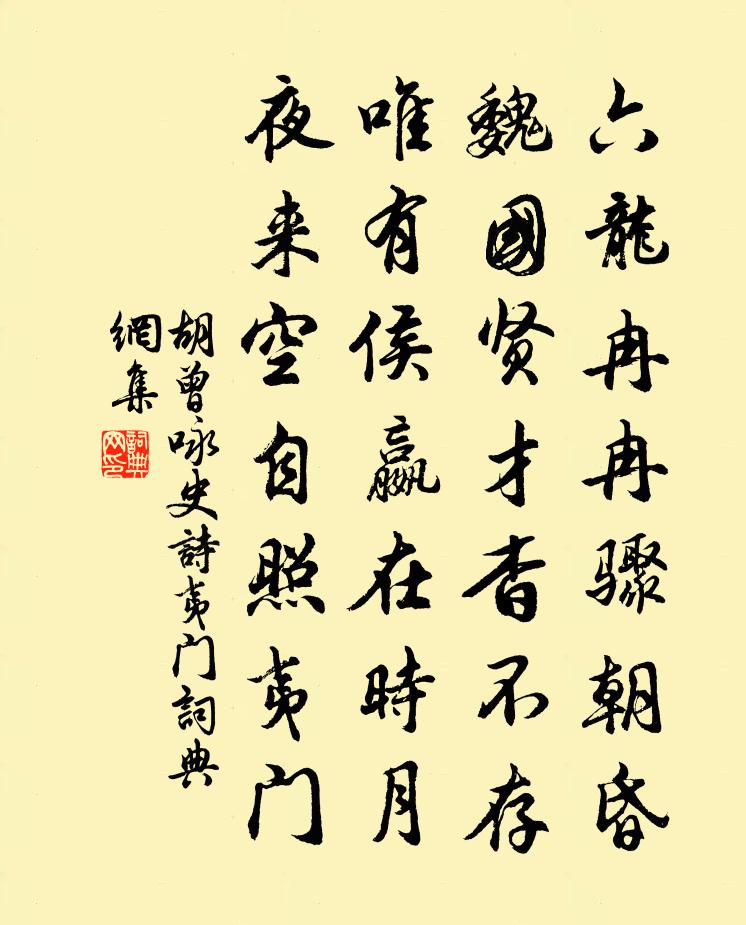 六龍冉冉驟朝昏
魏國贤才杳不存
唯有侯嬴在時月
夜来空自照夷门
胡曾咏史詩夷门詞典
網集
詞典
网印